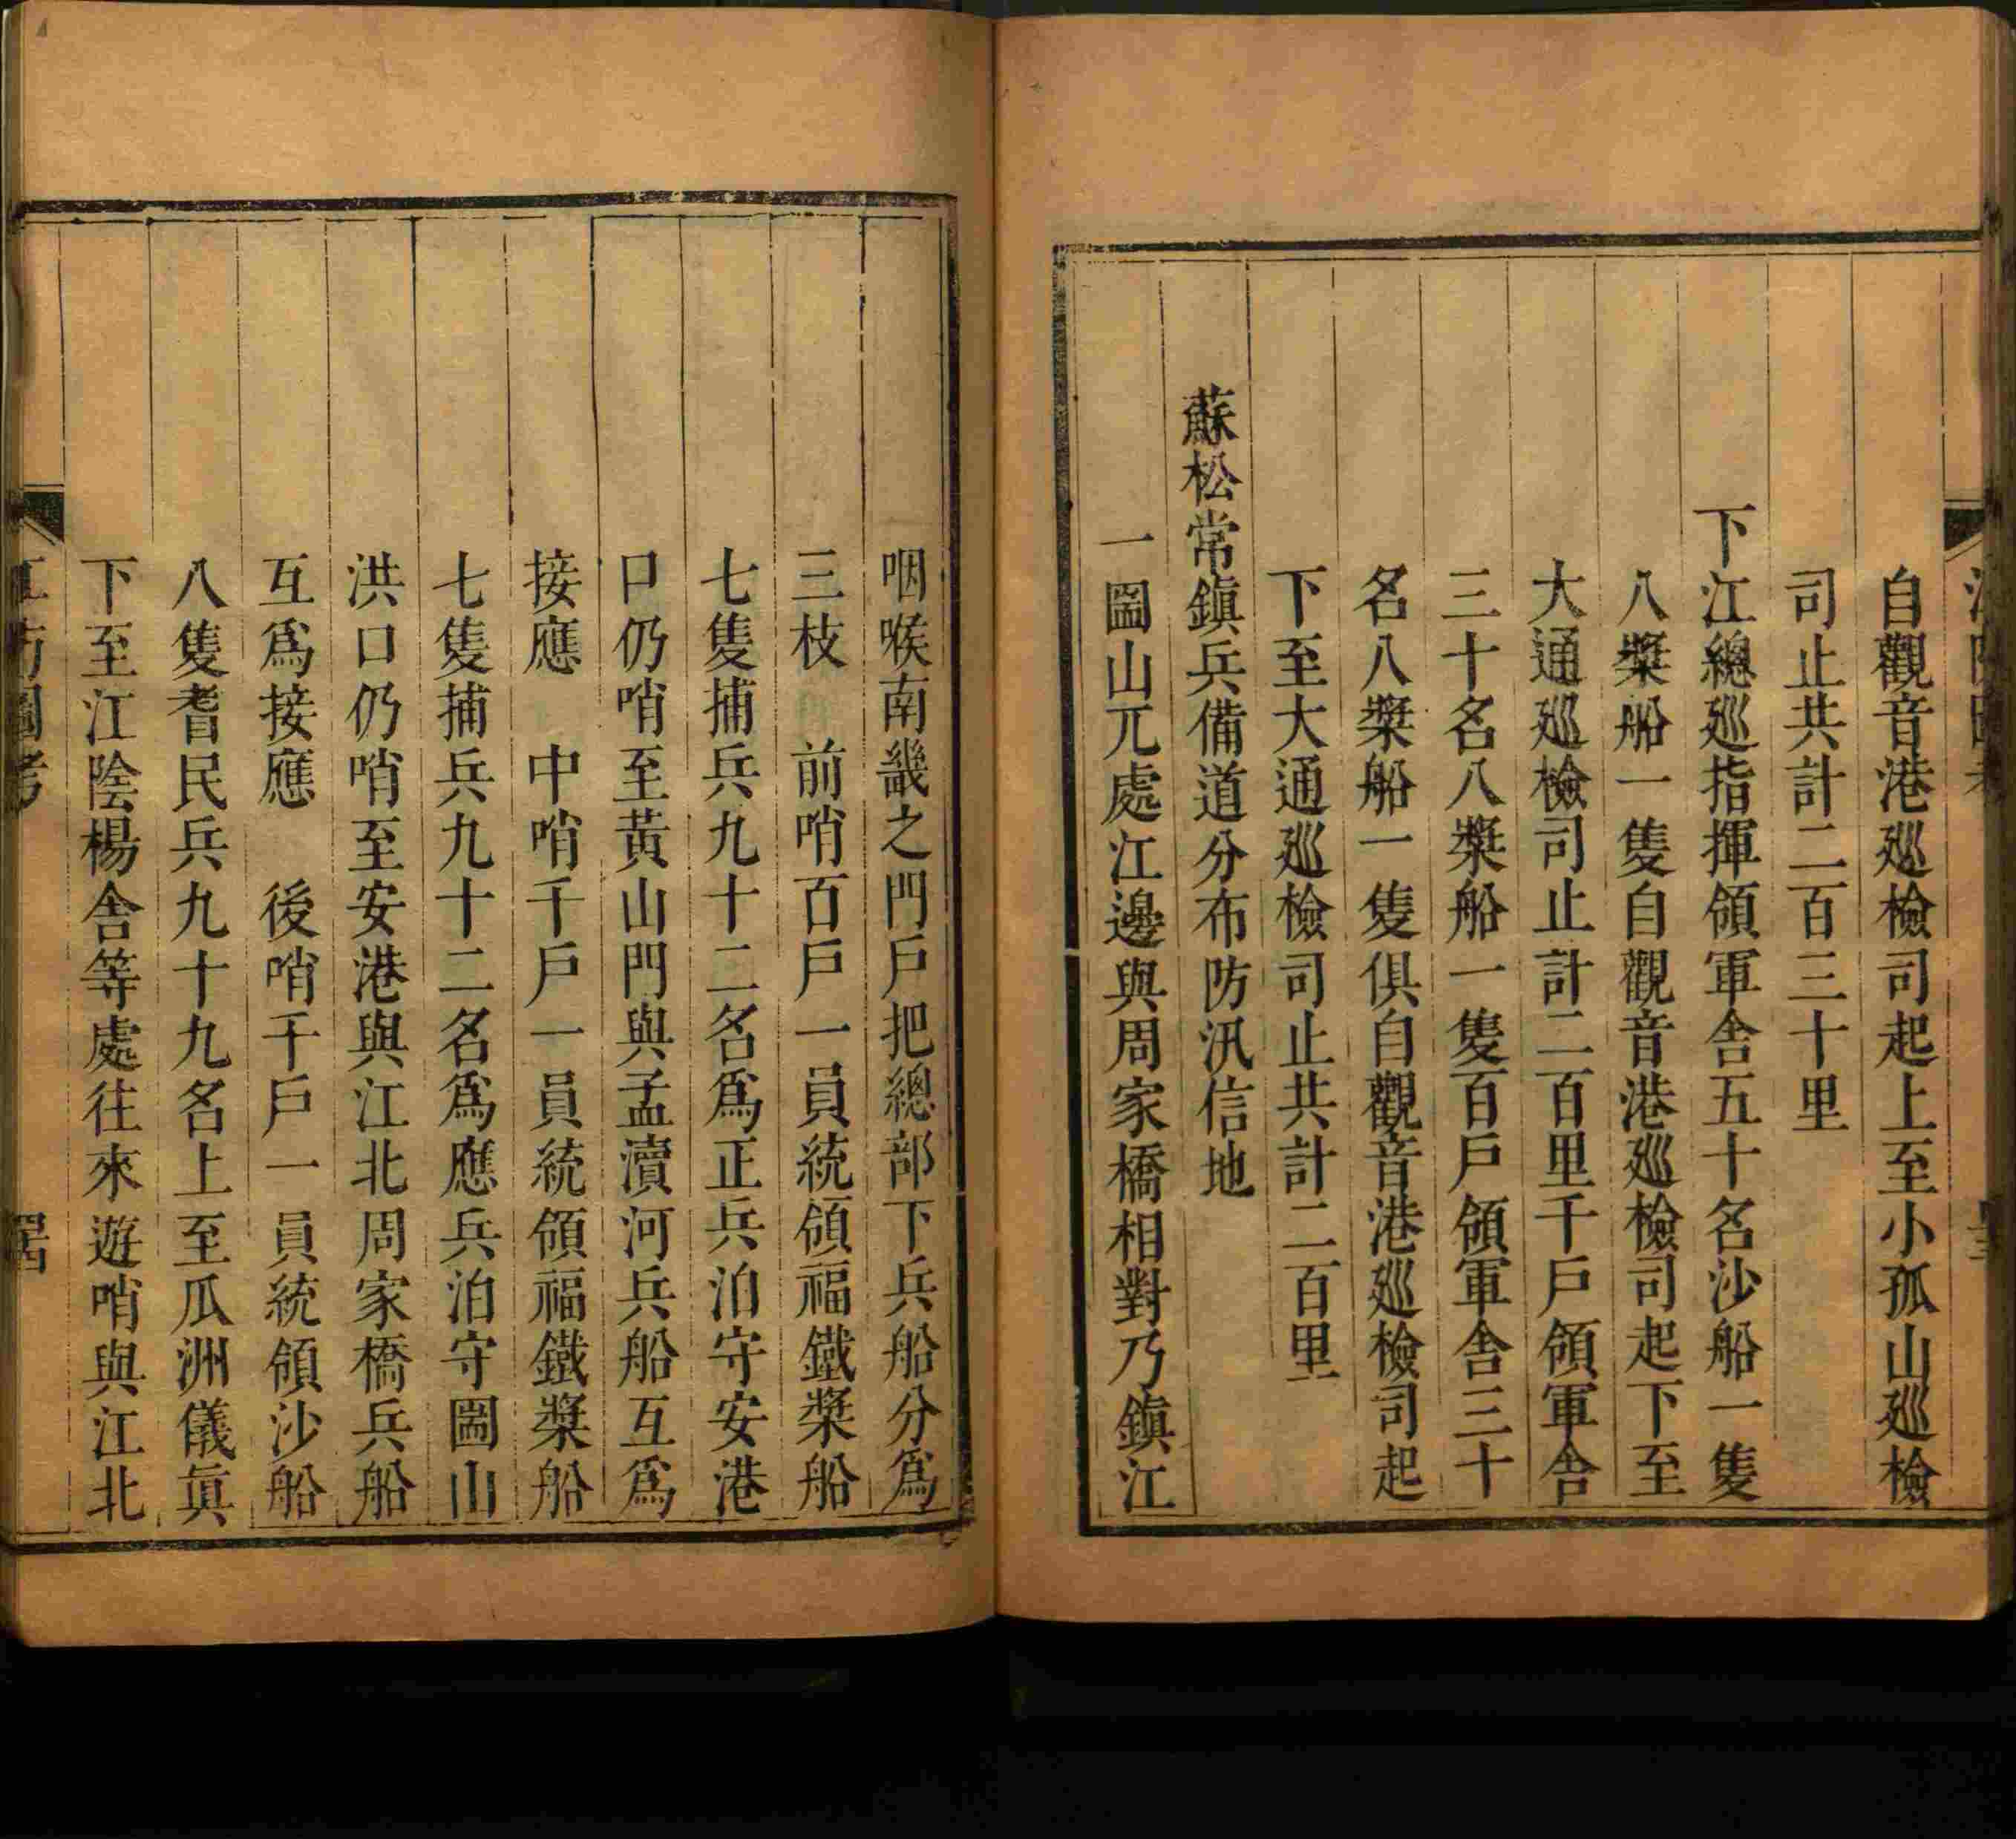 自觀音港廵檢司起上至小孤山廵檢
司止共計二百三十里
下江總廵指揮領軍舎五十名沙船一隻
八槳船一隻自觀音港廵檢司起下至
大通廵檢司止計二百里千戶領軍舎
三十名八槳船一隻百戶領軍舎三十
名八槳船一隻俱自觀音港廵檢司起
下至大通廵檢司止共計二百里
蘇松常鎭兵備道分布防汛信地
一圌山兀處江邊與周家橋相對乃鎭江
咽喉南畿之門戶把總部下兵船分爲
三枝 前哨百戶一員統領福鐵槳船
七隻捕兵九十二名爲正兵泊守安港
口仍哨至黃山門與孟瀆河兵船互爲
接應 中哨千戶一員統領福鐵槳船
七隻捕兵九十二名爲應兵泊守圌山
洪口仍哨至安港與江北周家橋兵船
互爲接應 後哨千戶一員統領沙船
八隻耆民兵九十九名上至瓜洲儀眞
下至江陰楊舎等處往來遊哨與江北
江防圖考